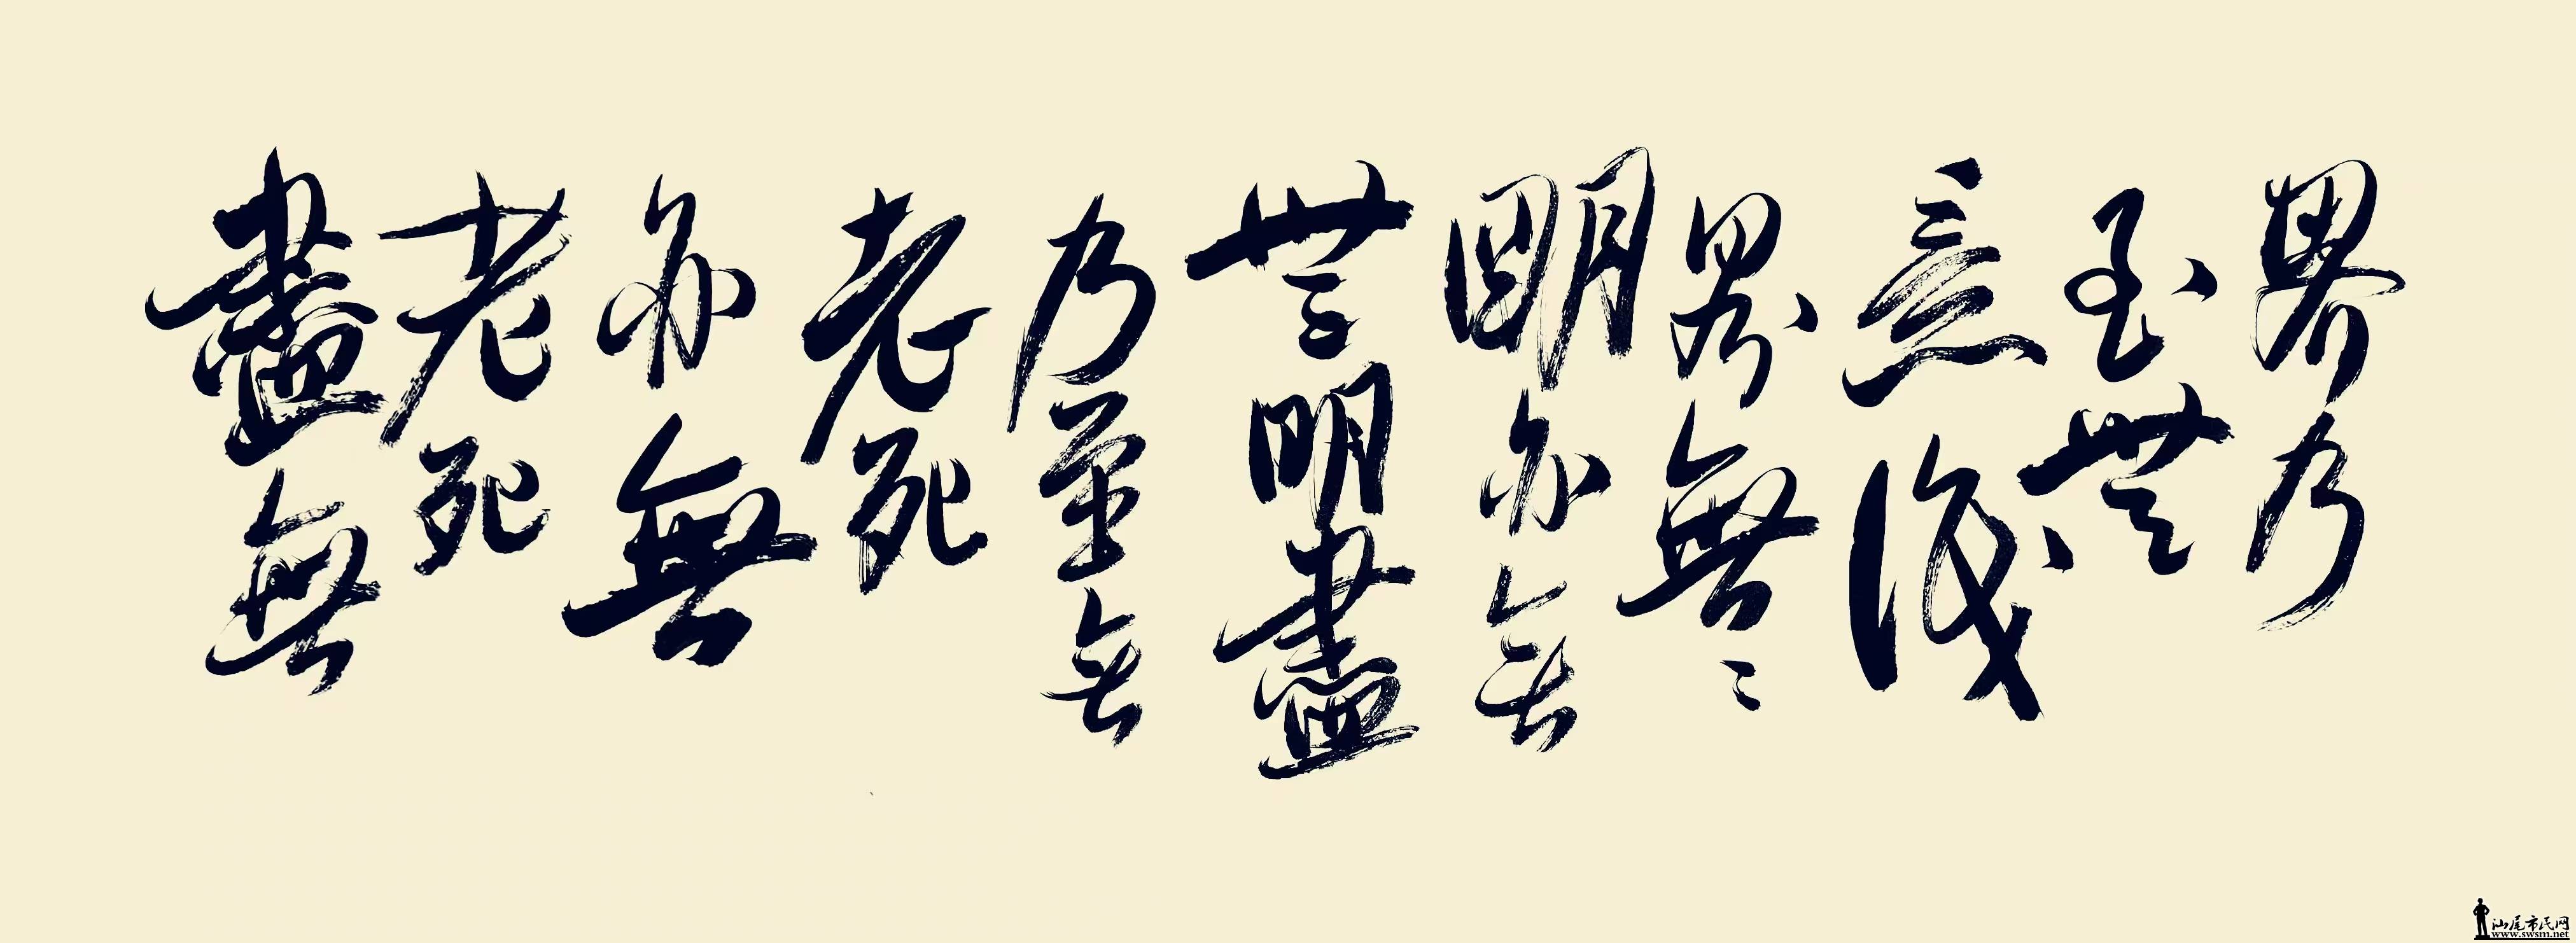 界乃
至無
意識
界無〻
明亦無
無明盡
乃至無
老死
亦無
老死
盡無
汕尾市民网
www.swsm.net